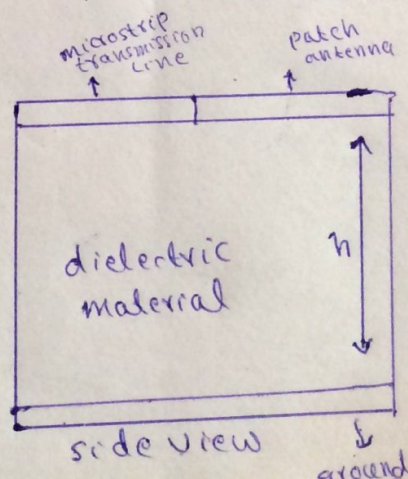 microstrip
transmission
Line
patch
antenna
dielectric
material
h
side view
ground